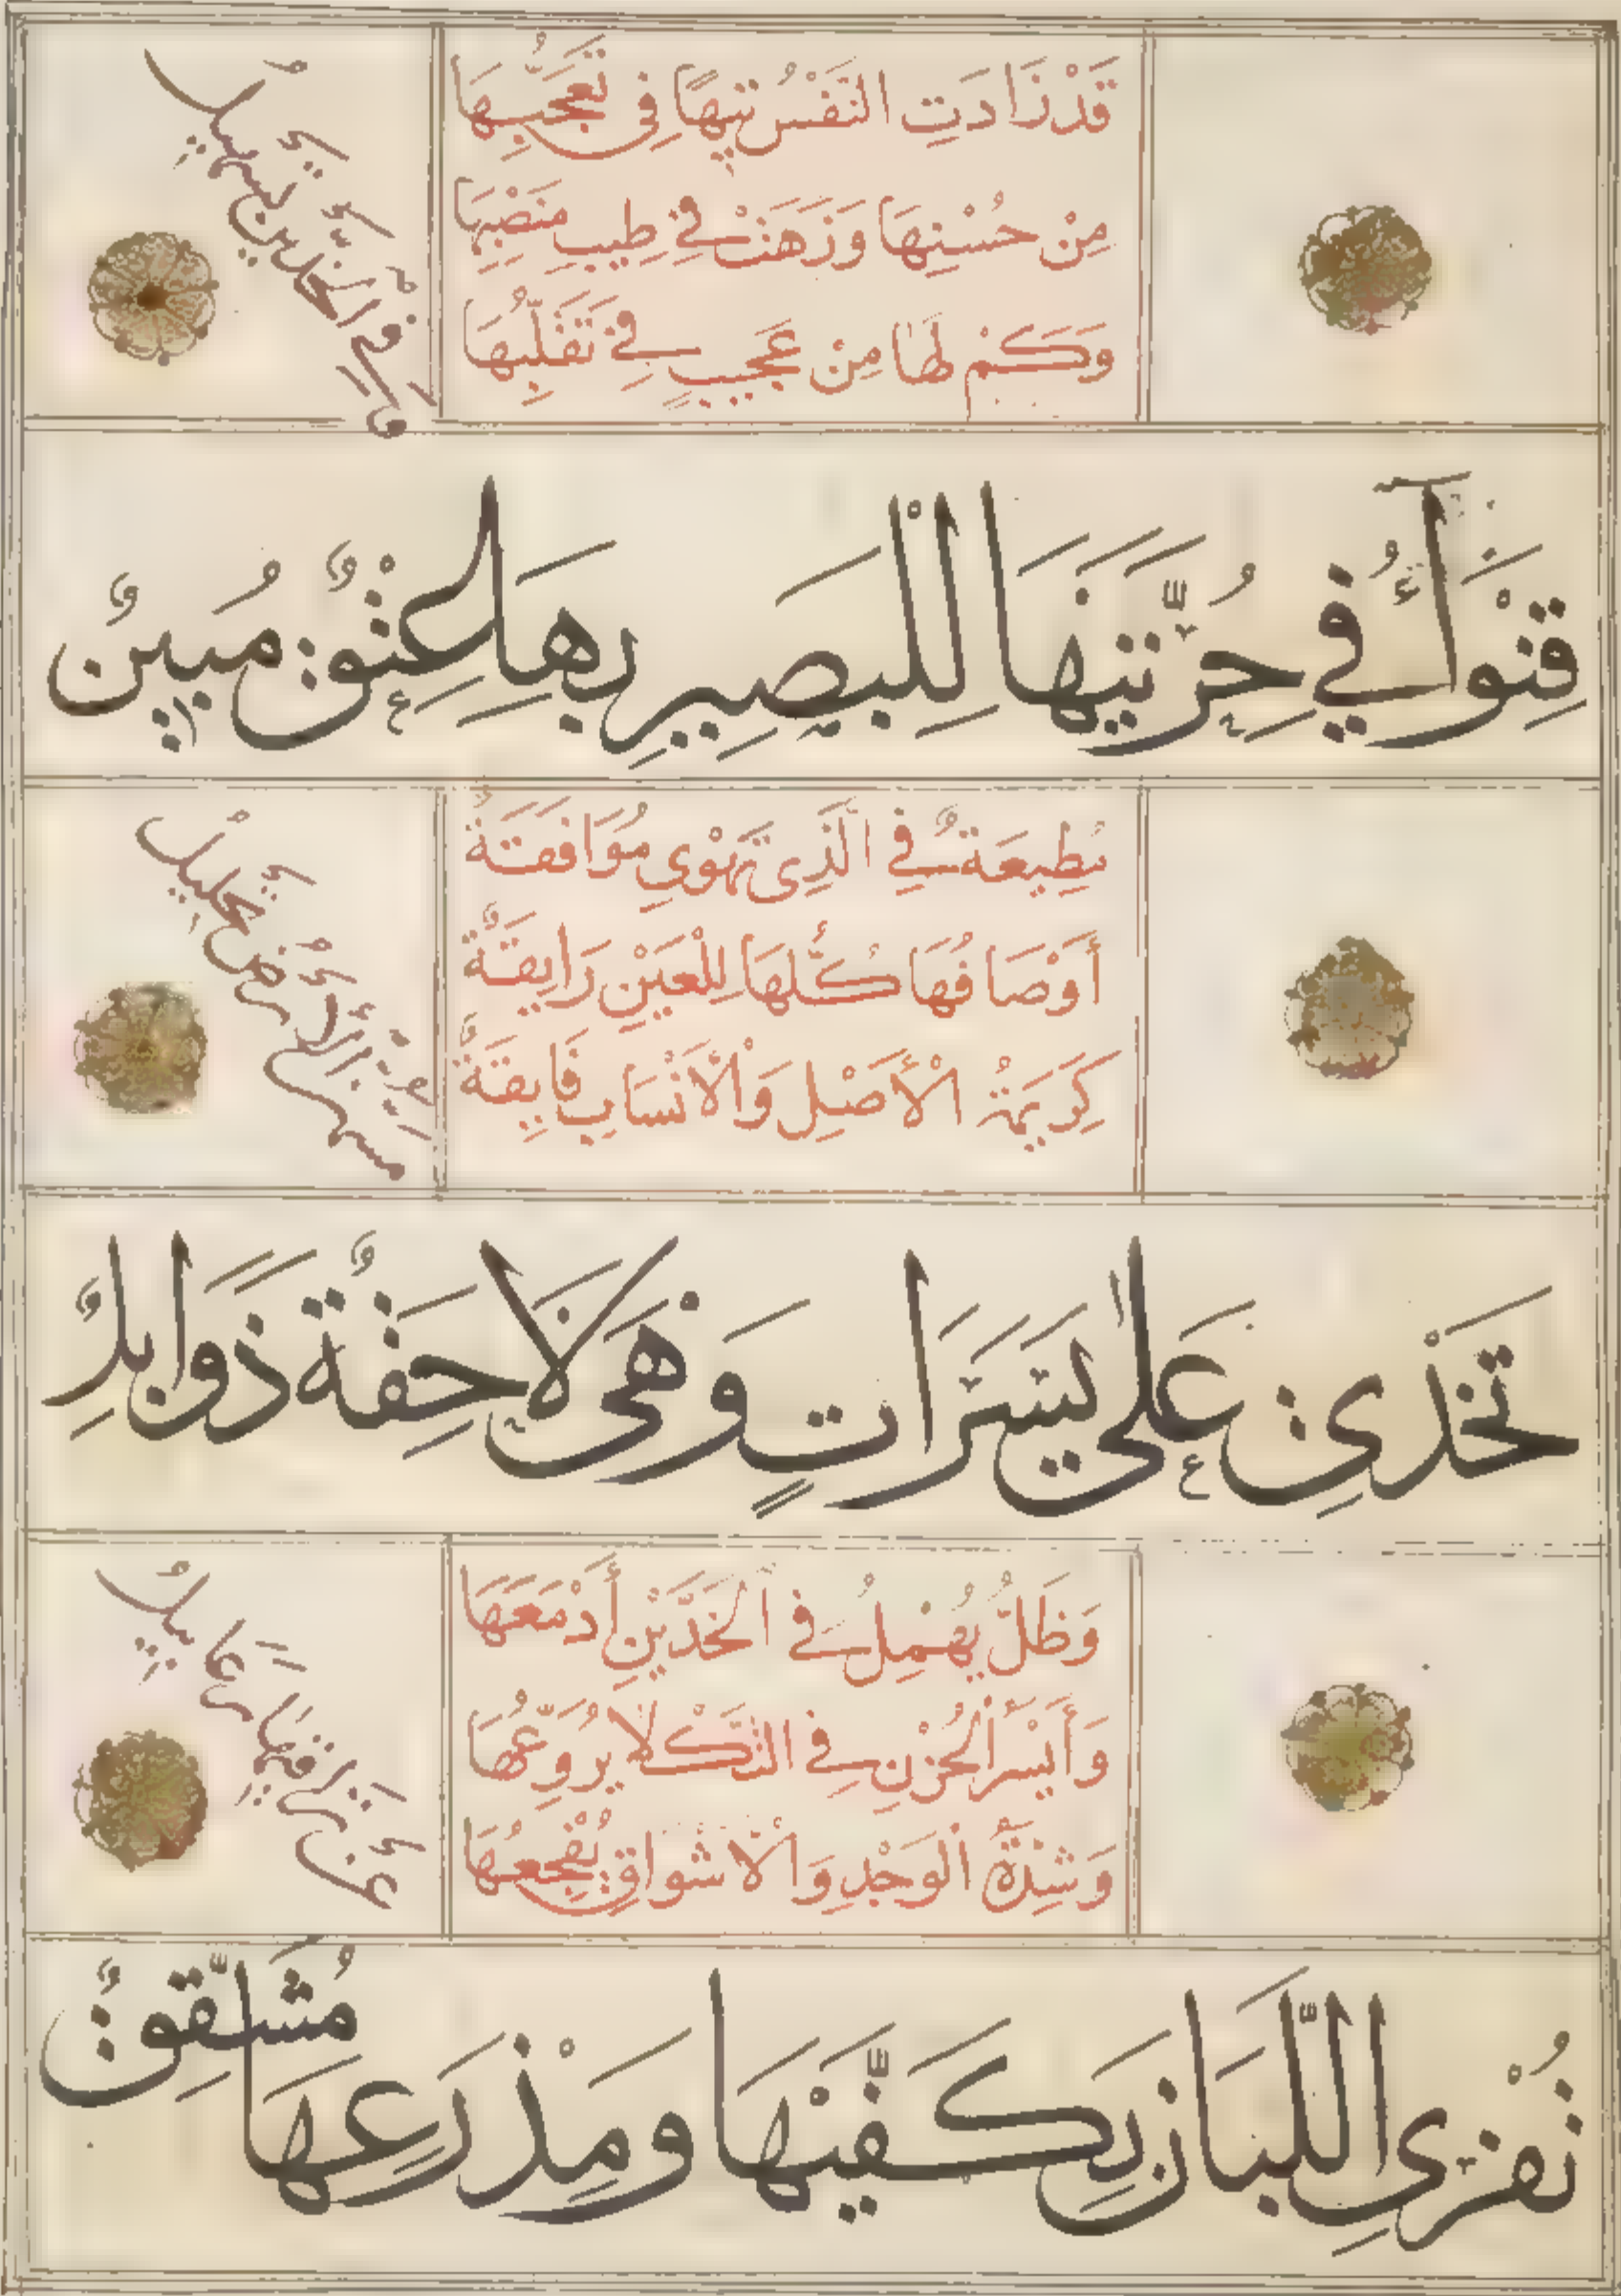 قَدْ زَادَتِ النَّفْسُ تِيهًا فِي تَعَجُّبِهَا
مِنْ حُسْنِهَا وَزَهَتْ فِي طِيبِ مَنْصِبِهَا
وَكَمْ لَهَا مِنْ عَجِيبٍ فِي تَقَلُّبِهَا
قَنْوَآءُ فِي حُرَّتَيْهَا لِلْبَصِيرِ بِهَا عِتْقٌ مُبِينٌ
وَفِي الْخَدَّيْنِ تَسْهِيلُ
مُطِيعَةٌ فِي الَّذِي تَهْوِي مُوَافَقَةً
أَوْصَافُهَا كُلُّهَا لِلْعَيْنِ رَايِقَةٌ
كَرِيمَةُ الْأَصْلِ وَالْأَنْسَابِ فَايِقَةٌ
تَخْذِي عَلَى يَسَرَاتٍ وَهْيَ لَاحِقَةٌ ذَوَابِلٌ
مَسُّهُنَّ الْأَرْضَ تَحْلِيلُ
وَظَلَّ يُهْمِلُ فِي الْخَدَّيْنِ أَدْمُعَهَا
وَأَيْسَرُ الْحُزْنِ فِي الثَّكْلَا يُرَوِّعُهَا
وَشِدَّةُ الْوَجْدِ وَالْأَشْوَاقِ يُفْجِعُهَا
تُفْرِي اللَّبَانَ بِكَفَّيْهَا وَمِذْرَعِهَا مُشَقَّقٌ
عَنْ تَرَاقِيهَا رَعَابِيلُ